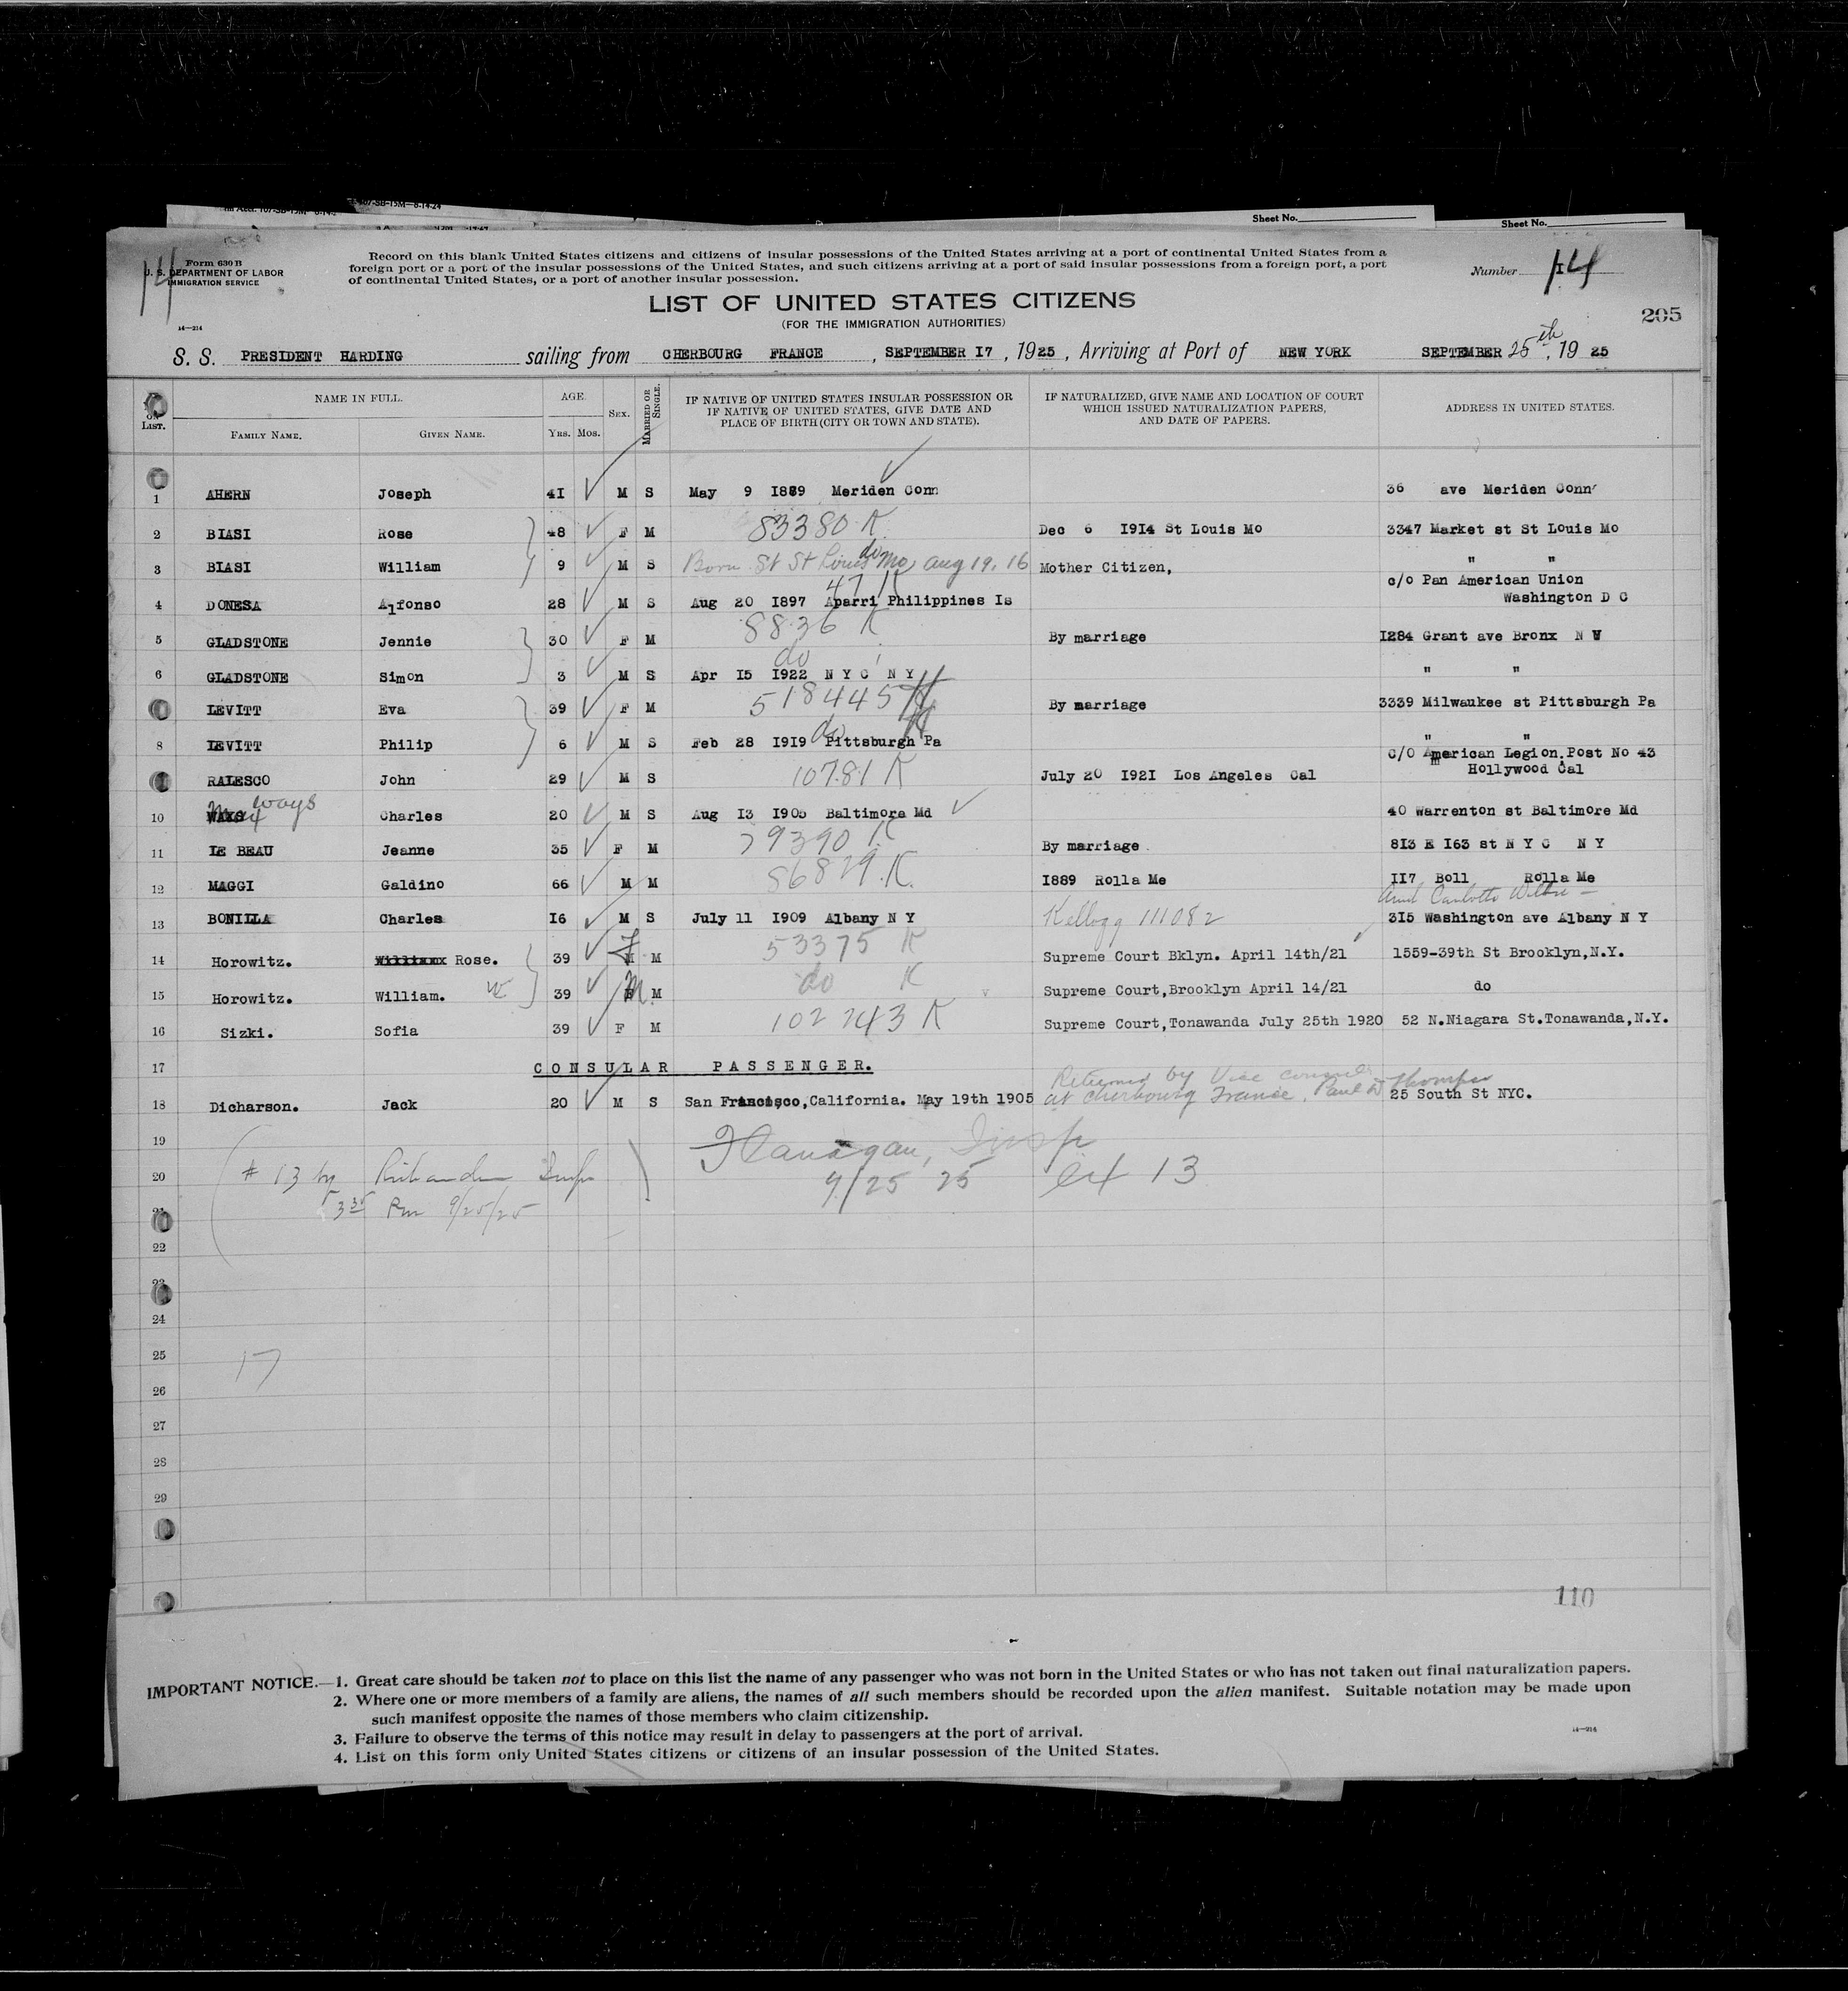 Sheet No.
Sheet No.
14
Form 630 B
U. S. DEPARTMENT OF LABOR
IMMIGRATION SERVICE
14—214
Record on this blank United States citizens and citizens of insular possessions of the United States arriving at a port of continental United States from a
foreign port or a port of the insular possessions of the United States, and such citizens arriving at a port of said insular possessions from a foreign port, a port
of continental United States, or a port of another insular possession.
Number 14
LIST OF UNITED STATES CITIZENS
(FOR THE IMMIGRATION AUTHORITIES)
205
S. S. PRESIDENT HARDING sailing from CHERBOURG FRANCE, SEPTEMBER I7, 1925, Arriving at Port of NEW YORK SEPTEMBER 25th, 19 25
ON LIST. NAME IN FULL. AGE. SEX. MARRIED OR SINGLE. IF NATIVE OF UNITED STATES INSULAR POSSESSION OR IF NATIVE OF UNITED STATES, GIVE DATE AND PLACE OF BIRTH (CITY OR TOWN AND STATE). IF NATURALIZED, GIVE NAME AND LOCATION OF COURT WHICH ISSUED NATURALIZATION PAPERS, AND DATE OF PAPERS. ADDRESS IN UNITED STATES.
FAMILY NAME. GIVEN NAME. YRS. MOS.
1 AHERN Joseph 4I M S May 9 I889 Meriden Conn 36 ave Meriden Conn
83380 K
2 BIASI Rose 48 F M Dec 6 I9I4 St Louis Mo 3347 Market st St Louis Mo
do
3 BIASI William 9 M S Born St St Louis Mo Aug 19, 16 Mother Citizen, " "
47 K c/o Pan American Union
4 DONESA Alfonso 28 M S Aug 20 I897 Aparri Philippines Is Washington D C
8836 K
5 GLADSTONE Jennie 30 F M By marriage I284 Grant ave Bronx N Y
do
6 GLADSTONE Simon 3 M S Apr I5 I922 N Y C N Y " "
518445
LEVITT Eva 39 F M By marriage 3339 Milwaukee st Pittsburgh Pa
do
8 LEVITT Philip 6 M S Feb 28 I9I9 Pittsburgh Pa " "
c/o American Legion, Post No 43
RALESCO John 29 M S 10781 K July 20 I92I Los Angeles Cal Hollywood Cal
ways
10 Charles 20 M S Aug I3 I905 Baltimore Md 40 Warrenton st Baltimore Md
79390 K
11 LE BEAU Jeanne 35 F M By marriage 8I3 E I63 st N Y C N Y
86829 K.
12 MAGGI Galdino 66 M M I889 Rolla Mo II7 Boll Rolla Mo
13 BONILLA Charles I6 M S July 11 I909 Albany N Y Kellogg 111082 3I5 Washington ave Albany N Y
53375 K
14 Horowitz. Rose. 39 F M Supreme Court Bklyn. April 14th/21 1559-39th St Brooklyn,N.Y.
do K
15 Horowitz. William. W 39 M M Supreme Court,Brooklyn April 14/21 do
102743 K
16 Sizki. Sofia 39 F M Supreme Court,Tonawanda July 25th 1920 52 N.Niagara St.Tonawanda,N.Y.
17 CONSULAR PASSENGER.
Returned by Vice consul
18 Dicharson. Jack 20 M S San Francisco,California. May 19th 1905 at Cherbourg France, Paul 25 South St NYC.
19 Flanagan, Insp
20 # 13 by 9/25 25 ex 13
21 3 35 Pm 9/25/25
22
23
24
25 17
26
27
28
29
110
IMPORTANT NOTICE.—1. Great care should be taken not to place on this list the name of any passenger who was not born in the United States or who has not taken out final naturalization papers.
2. Where one or more members of a family are aliens, the names of all such members should be recorded upon the alien manifest. Suitable notation may be made upon
such manifest opposite the names of those members who claim citizenship.
3. Failure to observe the terms of this notice may result in delay to passengers at the port of arrival.
4. List on this form only United States citizens or citizens of an insular possession of the United States.
14—214